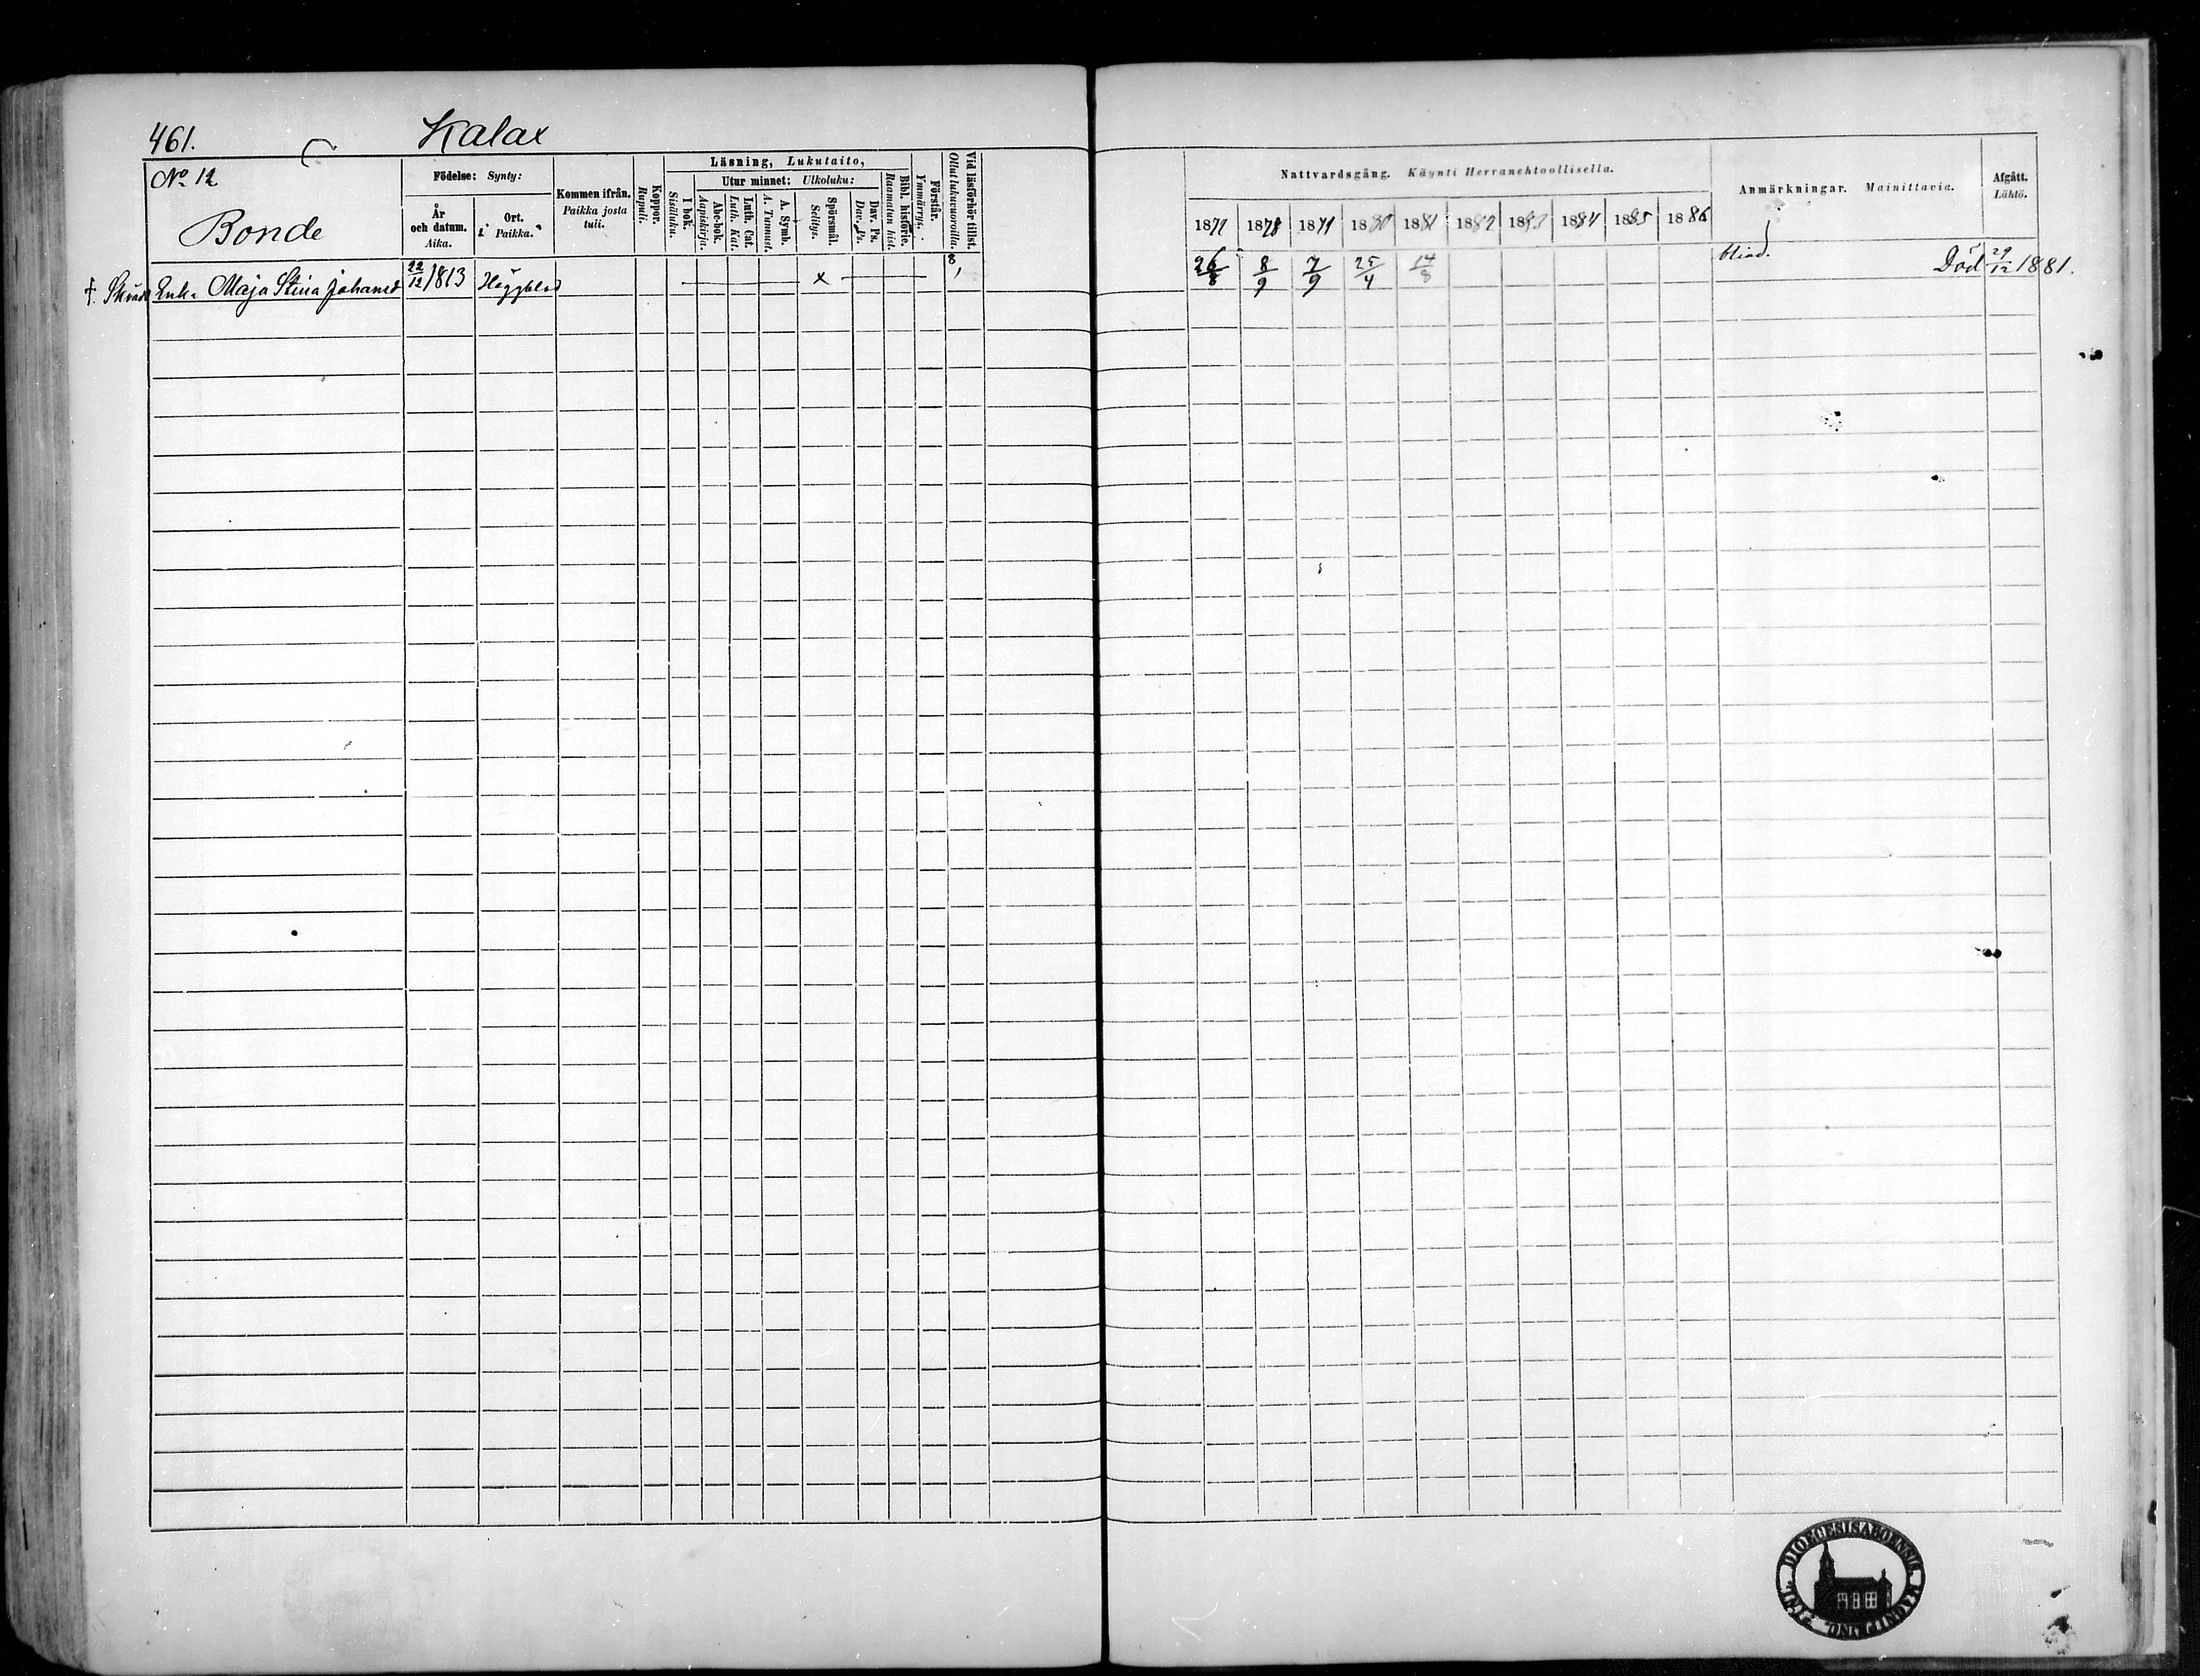 461.
Kalax
No 12
Bonde
Födelse: Synty:
År och datum. Aika.
Ort. Paikka.
Kommen ifrån. Paikka josta tuli.
Koppor. Rupuli.
Läsning, Lukutaito,
I bok. Sisäluku.
Utur minnet: Ulkoluku:
Abc-bok. Aapiskirja.
Luth. Cat. Luth. Kat.
A. Symb. A. Tunnust.
Spörsmål. Selitys.
Dav. Ps. Dav. Ps.
Bibl. historie. Raamatun hist.
Förstår. Ymmärrys.
Vid läsförhör tillst. Ollut lukuvuoroilla.
Nattvardsgång. Käynti Herranehtoollisella.
1877 1878 1879 1880 1881 1882 1883 1884 1885 1886
Anmärkningar. Mainittavia.
Afgått. Lähtö.
†. Enk. Maja Stina Johansd 22/12 1813 Häggblad x 8, 26/8 8/9 7/9 25/4 14/8 blind. Död 29/12 1881.
DIOECESIS ABOENSIS